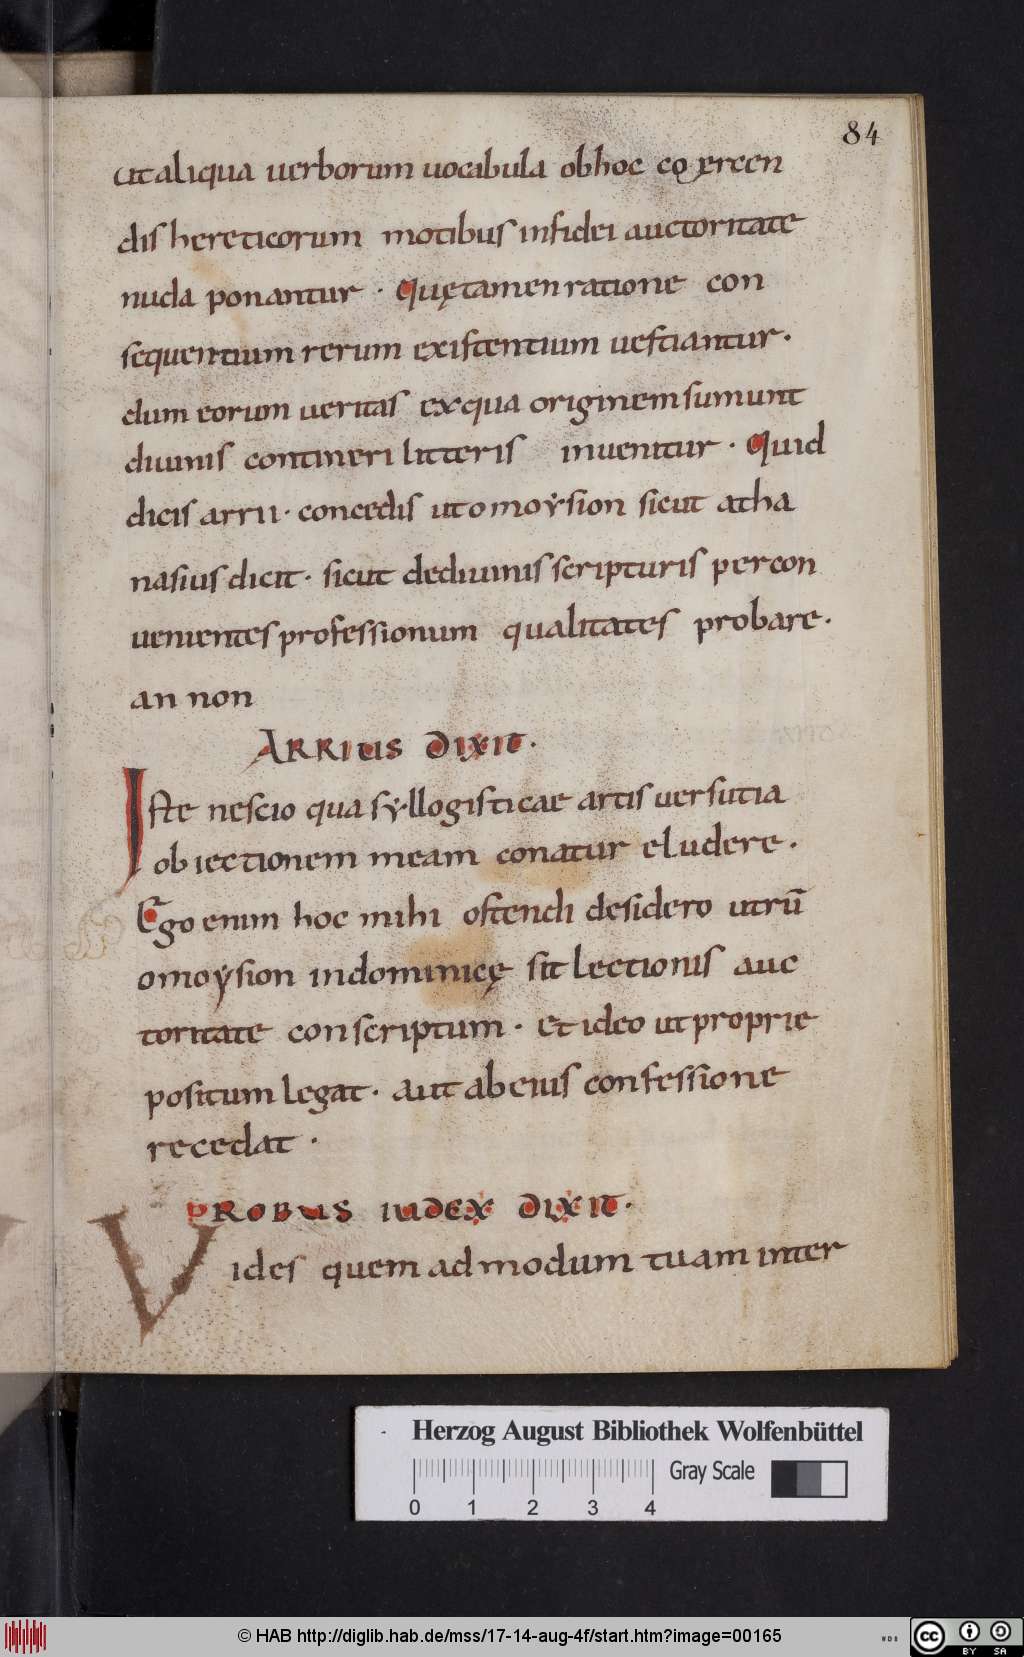 84
ut aliqua uerborum uocabula obhoc coercen
dis hereticorum motibus infidei auctoritate
nuda ponantur · Quę tamen ratione con
sequentium rerum existentium uestiantur ·
dum eorum ueritas ex qua originem sumunt
diuinis contineri litteris inuenitur · Quid
dicis arrii · concedis ut omoẏsion sicut atha
nasius dicit · sicut de diuinis scripturis per con
uenientes professionum qualitates probare ·
an non
ARRIUS DIXIT ·
Iste nescio qua sẏllogisticae artis uersutia
obiectionem meam conatur eludere ·
Ego enim hoc mihi ostendi desidero utrū
omoẏsion in dominicę sit lectionis auc
toritate conscriptum · et ideo ut proprie
positum legat · aut ab eius confessione
recedat ·
PROBUS IUDEX DIXIT ·
Vides quem ad modum tuam inter
Herzog August Bibliothek Wolfenbüttel
Gray Scale
0 1 2 3 4
© HAB http://diglib.hab.de/mss/17-14-aug-4f/start.htm?image=00165
WDB
cc BY SA